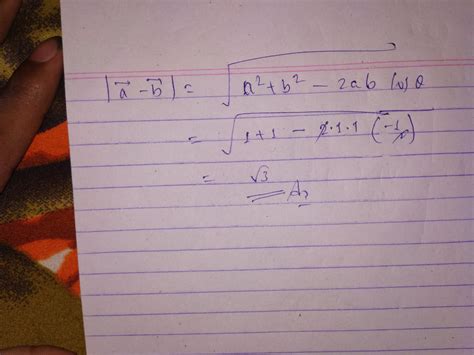 |a⃗ - b⃗| = √(a² + b² - 2ab cos θ)
= √(1+1 - 2·1·1 (-1/2))
= √3